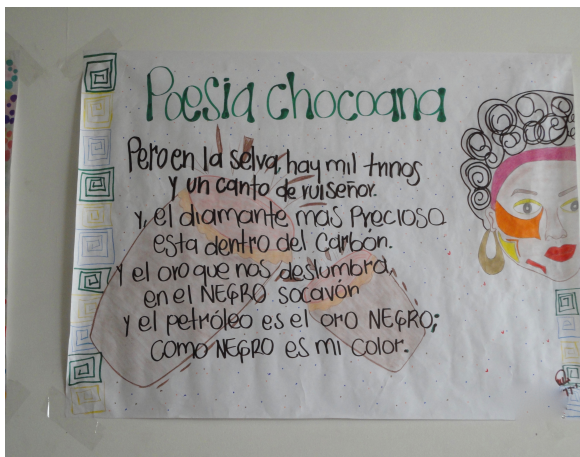 Poesia chocoana
Pero en la selva, hay mil trinos
y un canto de ruiseñor.
y, el diamante mas Precioso
esta dentro del Carbón.
y el oro que nos deslumbra,
en el NEGRO socavón
y el petróleo es el oro NEGRO;
como NEGRO es mi color.